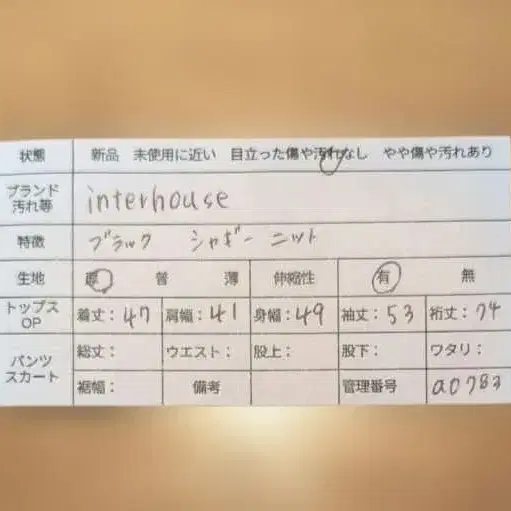 状態 新品 未使用に近い 目立った傷や汚れなし やや傷や汚れあり
ブランド
汚れ等 interhouse
特徴 ブラック シャギー ニット
生地 厚 普 薄 伸縮性 有 無
トップス
OP 着丈：47 肩幅：41 身幅：49 袖丈：53 裄丈：74
パンツ
スカート 総丈： ウエスト： 股上： 股下： ワタリ：
裾幅： 備考 管理番号 a0783